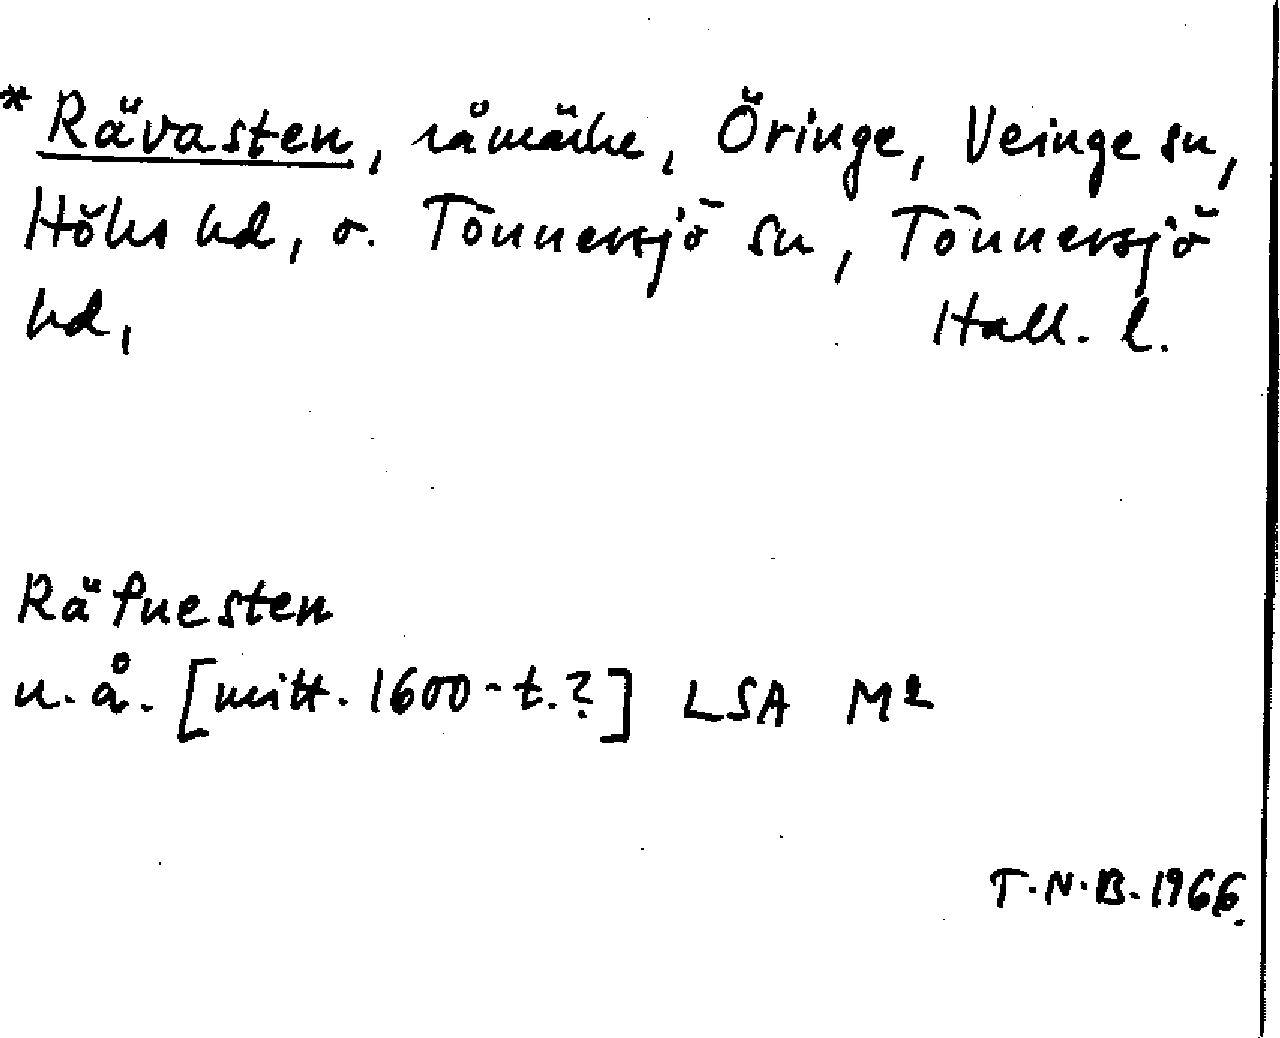 *Rävasten, råmärke, Öringe, Veinge sn,
Höks hd, o. Tönnersjö sn, Tönnersjö
hd, Hall. l.
Räfuesten
u. å. [mitt. 1600-t.?] LSA M2
T.N.B. 1966.